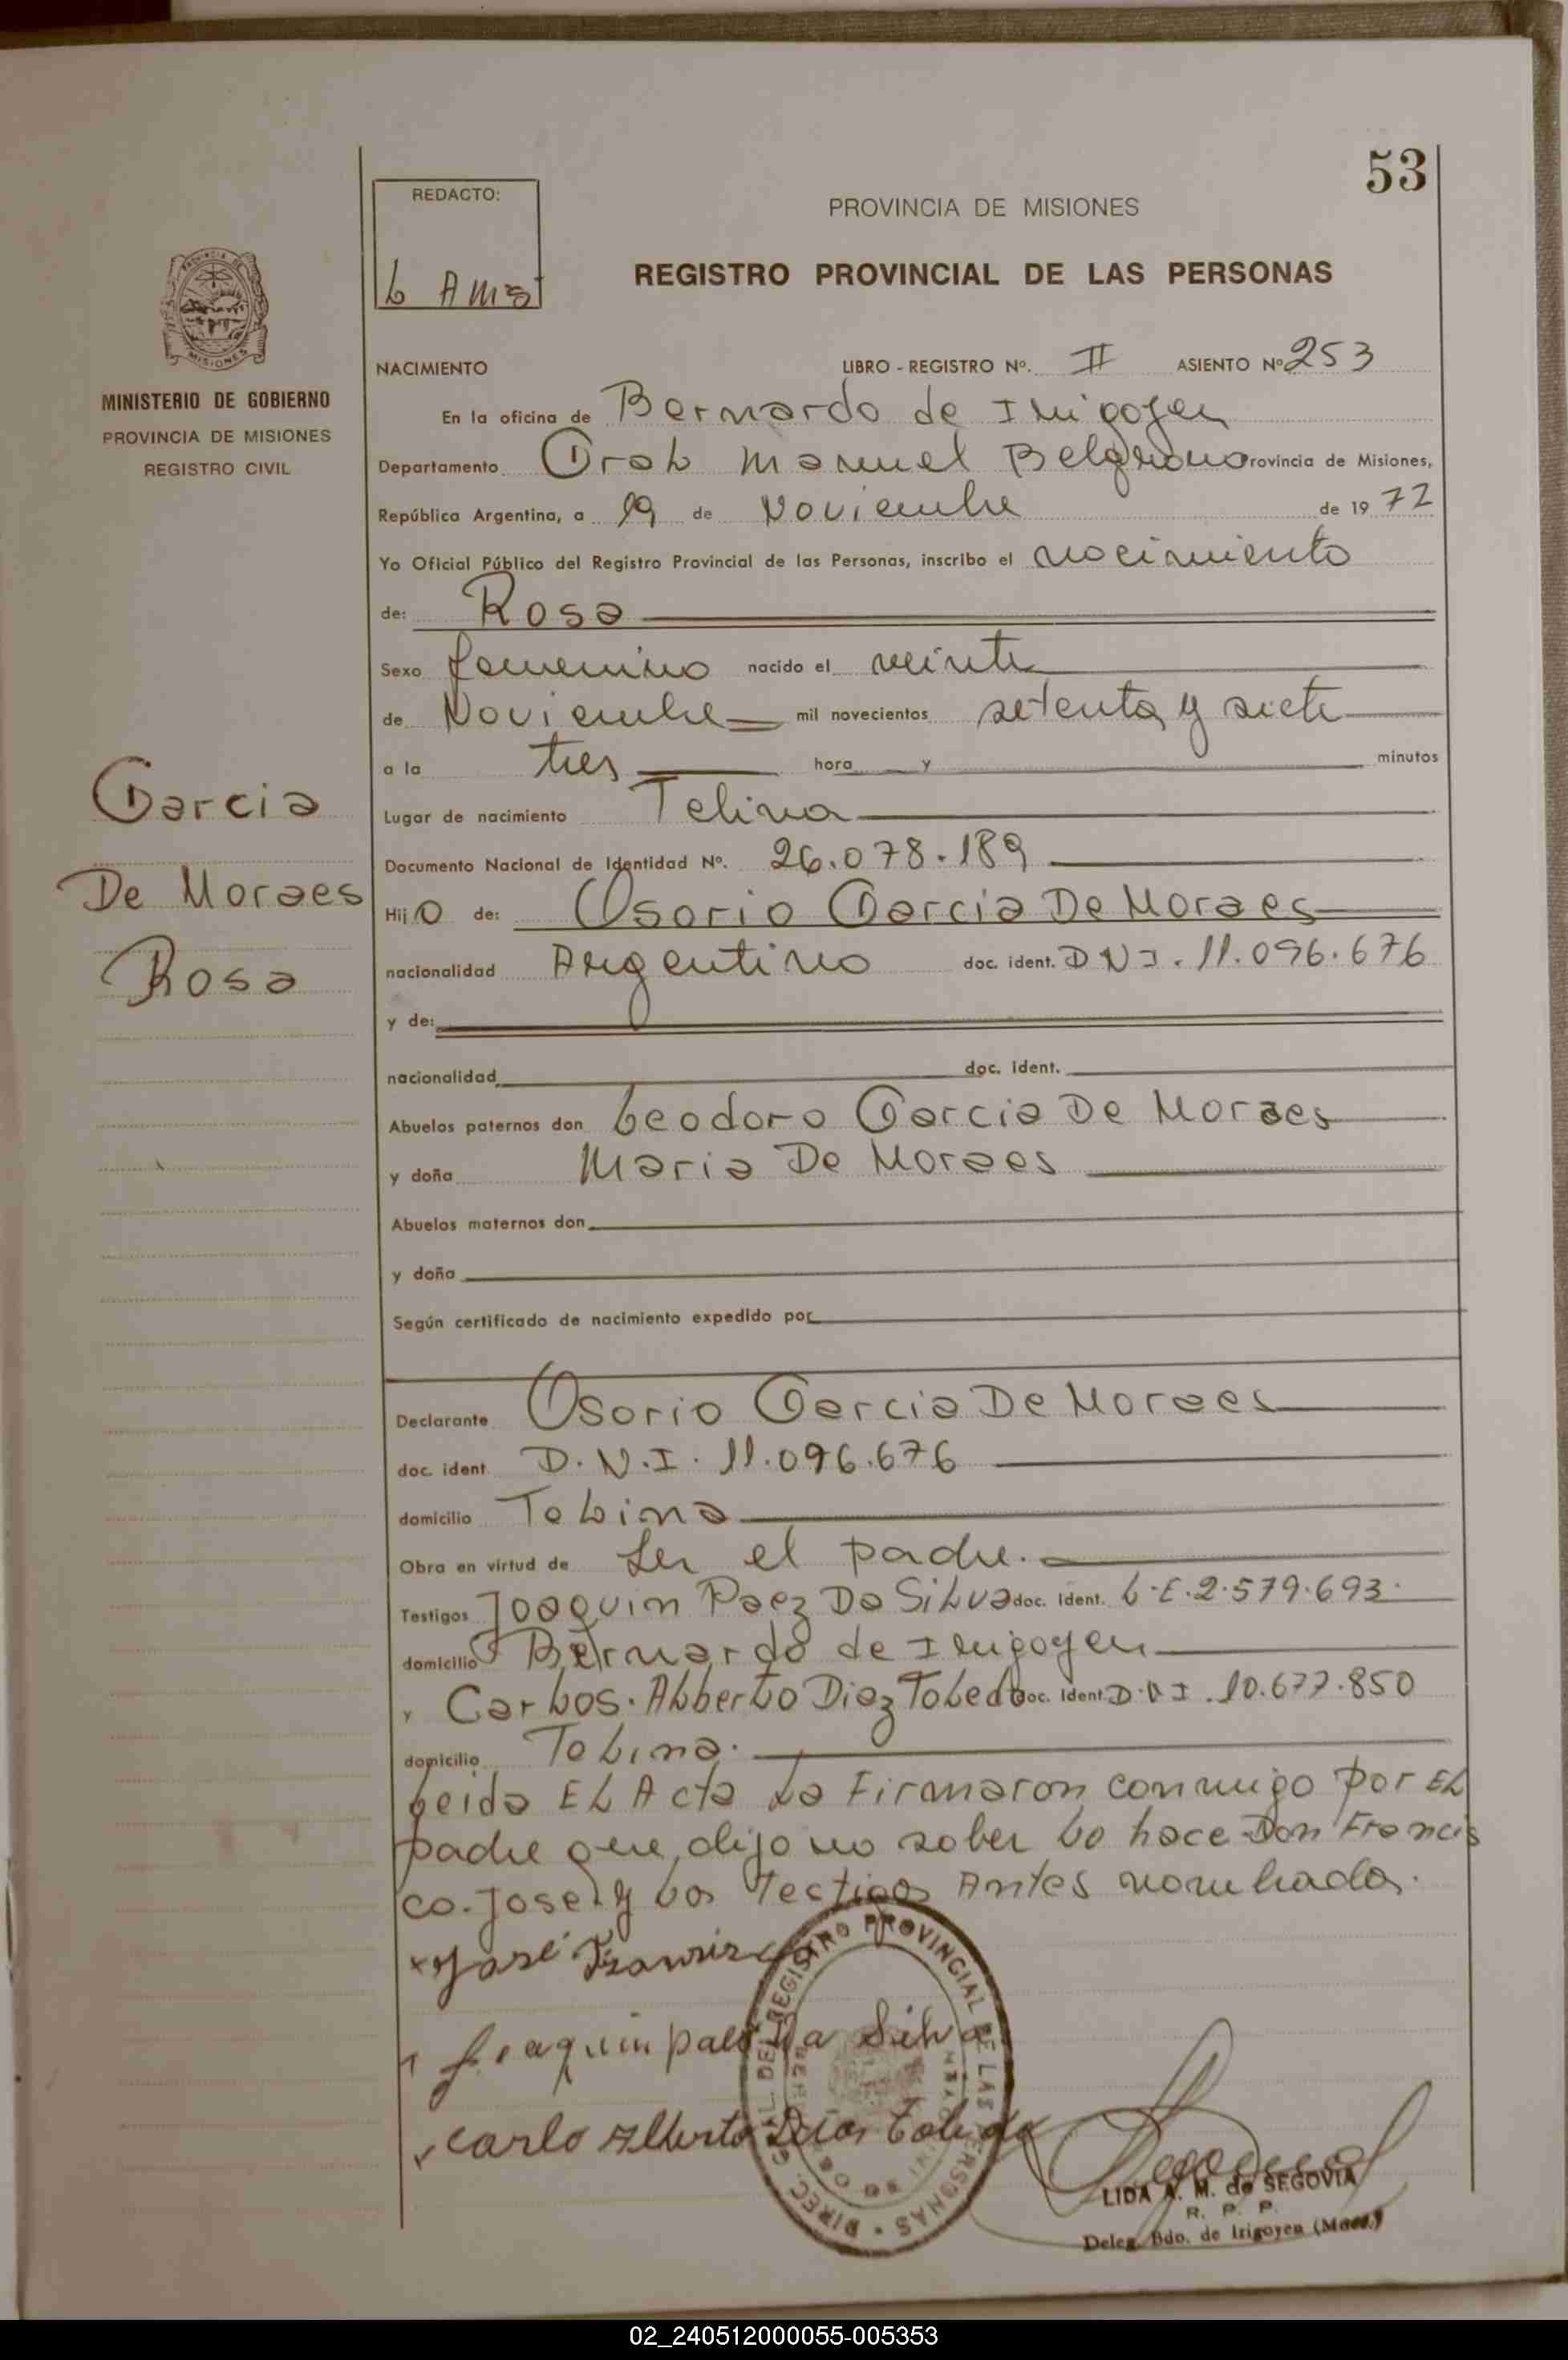 53
REDACTO:
L Ams
PROVINCIA DE MISIONES
REGISTRO PROVINCIAL DE LAS PERSONAS
MISIONES
MINISTERIO DE GOBIERNO
PROVINCIA DE MISIONES
REGISTRO CIVIL
NACIMIENTO LIBRO - REGISTRO Nº. II ASIENTO Nº 253
En la oficina de Bernardo de Irigoyen
Departamento Gral Manuel Belgrano Provincia de Misiones,
República Argentina, a 19 de Noviembre de 1972
Yo Oficial Público del Registro Provincial de las Personas, inscribo el nacimiento
de: Rosa
Sexo femenino nacido el veinte
de Noviembre mil novecientos setenta y siete
a la tres hora y minutos
Garcia
De Moraes
Rosa
Lugar de nacimiento Telina
Documento Nacional de Identidad Nº. 26.078.189
Hijo de: Osorio Garcia De Moraes
nacionalidad Argentino doc. ident. D N I. 11.096.676
y de:
nacionalidad doc. ident.
Abuelos paternos don Leodoro Garcia De Moraes
y doña Maria De Moraes
Abuelos maternos don
y doña
Según certificado de nacimiento expedido por
Declarante Osorio Garcia De Moraes
doc. ident D.N.I. 11.096.676
domicilio Tolina
Obra en virtud de Ser el padre.
Testigos Joaquin Paez Da Silva doc. ident. L.E.2.579.693.
domicilio Bernardo de Irigoyen
y Carlos. Alberto Diaz Toledo doc. ident D.N I. 10.677.850
domicilio Tolina.
Leida El Acta La Firmaron conmigo por El
padre que dijo no saber Lo hace Don Francis
co. Jose y Los Testigos Antes nombrados.
x José Francisco
Joaquin paes Da Silva
Carlo Alberto Dias Toledo
DIREC. GRAL. DEL REGISTRO PROVINCIAL DE LAS PERSONAS
LIDA A. M. de SEGOVIA
R. P. P.
Deleg. Bdo. de Irigoyen (Mnes.)
02_240512000055-005353